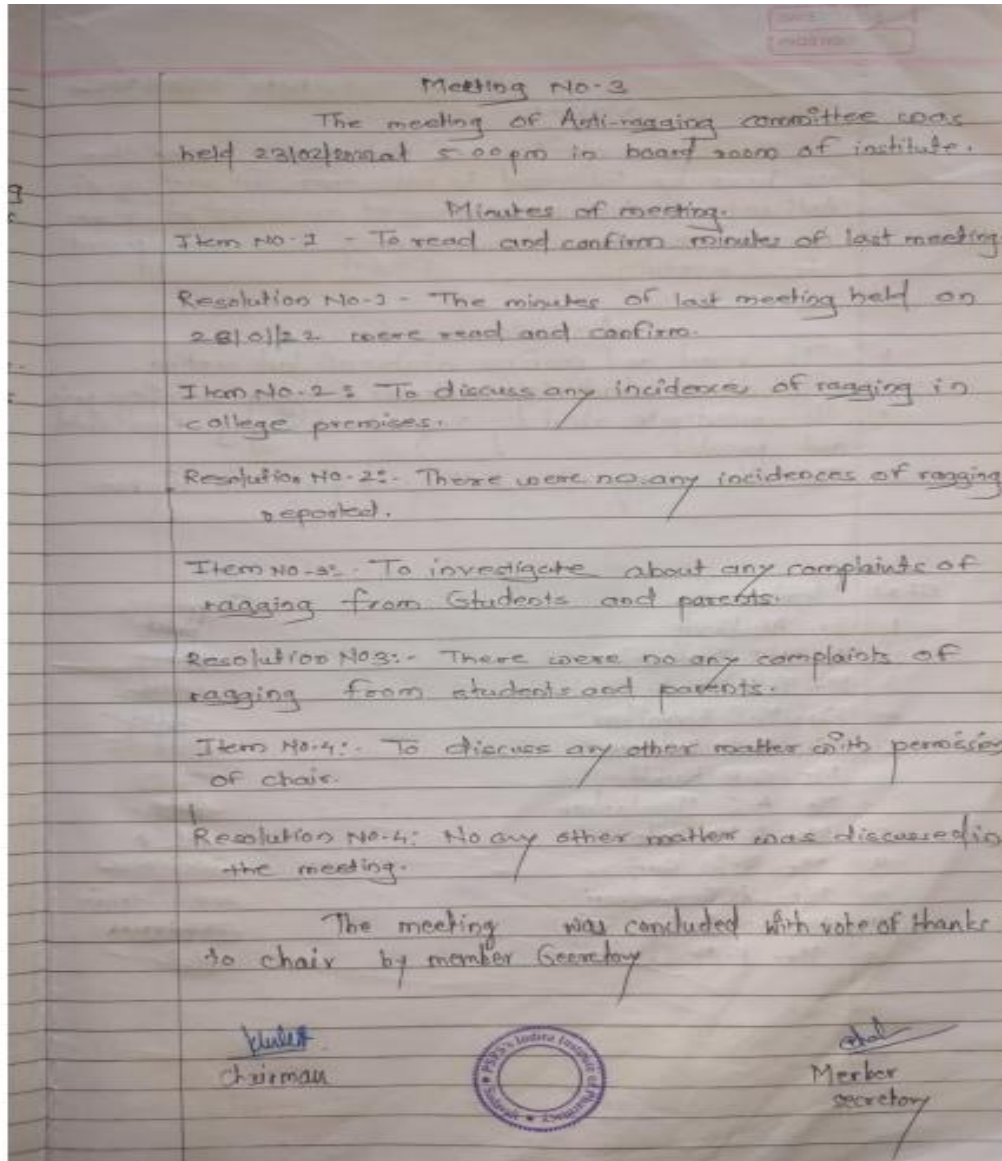 DATE
Meeting No-3
The meeting of Anti-ragging committee was
held 23/02/2022 at 5:00pm in board room of institute.
Minutes of meeting.
Item No-1 - To read and confirm minutes of last meeting
Resolution No-1 - The minutes of last meeting held on
28/01/22 were read and confirm.
Item No-2: To discuss any incidences of ragging in
college premises.
Resolution No-2:- There were no any incidences of ragging
reported.
Item No-3:- To investigate about any complaints of
ragging from Students and parents.
Resolution No3:- There were no any complaints of
ragging from students and parents.
Item No-4:- To discuss any other matter with permission
of chair.
Resolution No-4: No any other matter was discussed in
the meeting.
The meeting was concluded with vote of thanks
to chair by member Secretary
Chairman
PSPS's Indira Institute of Pharmacy
Merber
secretory